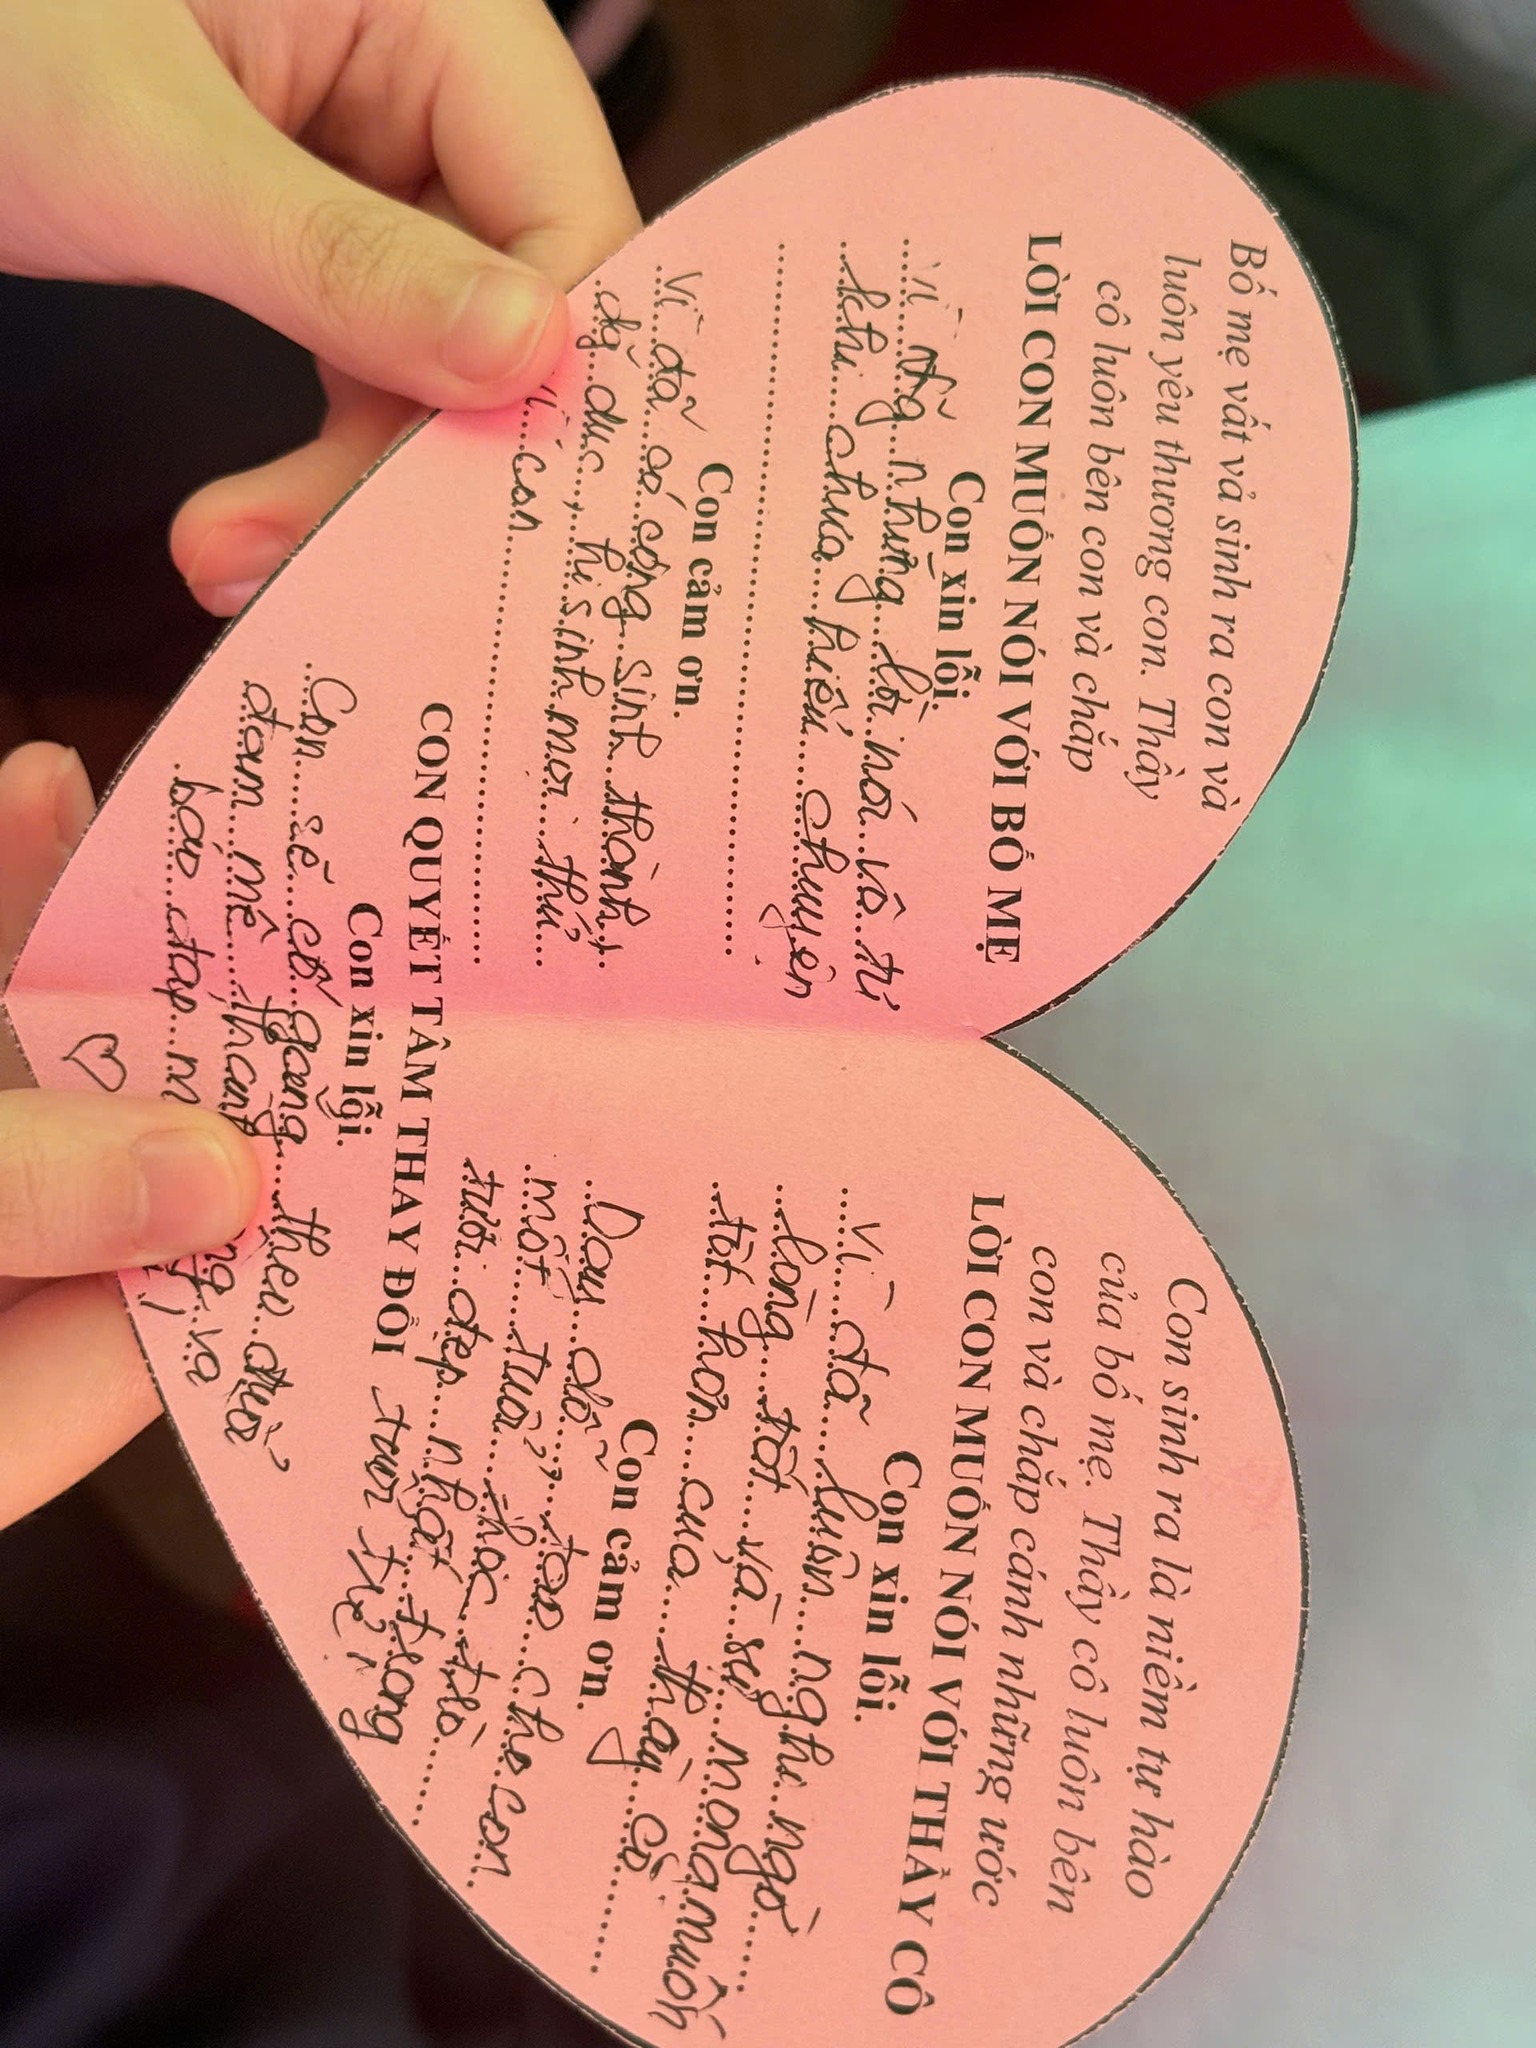 Bố mẹ vất vả sinh ra con và
luôn yêu thương con. Thầy
cô luôn bên con và chắp
LỜI CON MUỐN NÓI VỚI BỐ MẸ
Con xin lỗi.
Vì những lời nói vô tư
khi chưa hiểu chuyện
Con cảm ơn.
Vì đã có công sinh thành,
dg dục, hi sinh mọi thứ
vì con
Con sinh ra là niềm tự hào
của bố mẹ. Thầy cô luôn bên
con và chắp cánh những ước
LỜI CON MUỐN NÓI VỚI THẦY CÔ
Con xin lỗi.
Vì đã luôn nghi ngờ
lòng tốt và sự mong muốn
tốt hơn của thầy cô
Con cảm ơn.
Dạy dỗ, tạo cho con
một tuổi học trò
tươi đẹp nhất trong
tuổi trẻ
CON QUYẾT TÂM THAY ĐỔI
Con xin lỗi.
Con sẽ cố gắng theo đuổi
đam mê, thành và
báo đáp